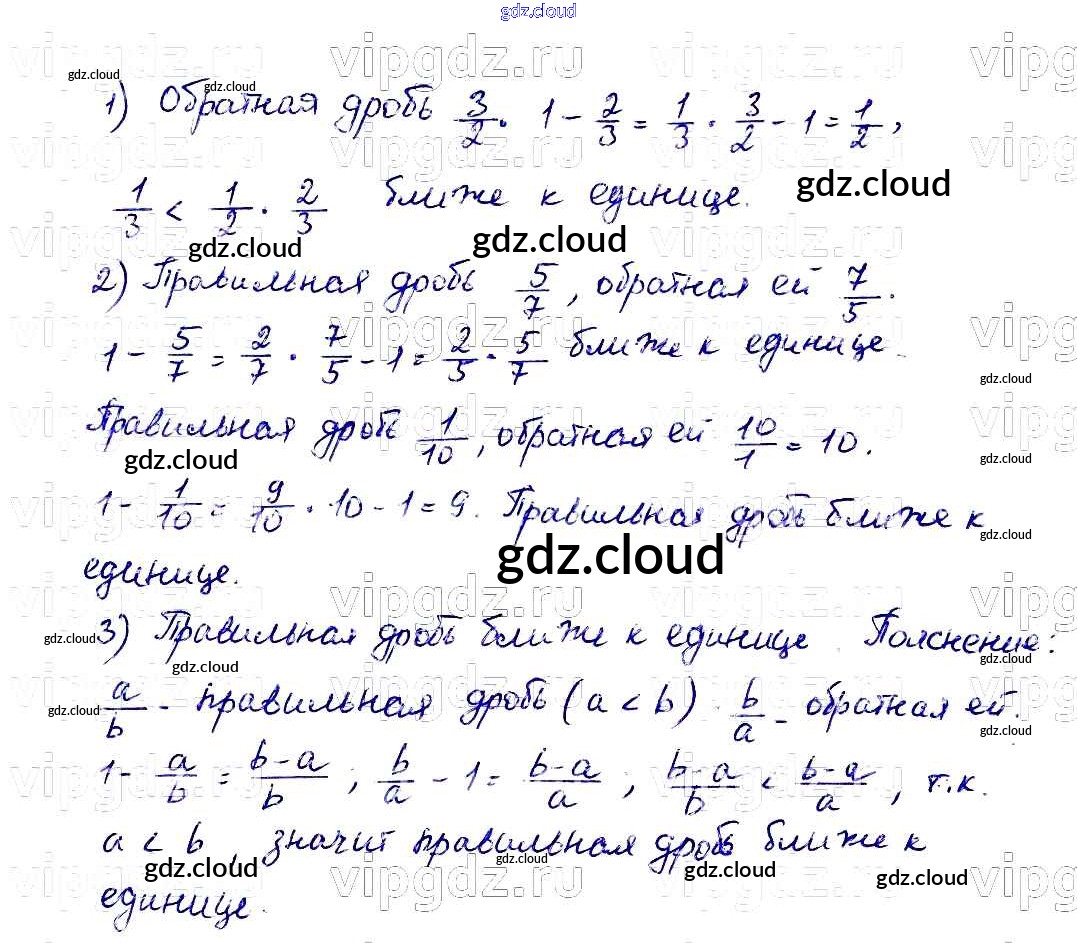 gdz.cloud
1) Обратная дробь 3/2. 1 - 2/3 = 1/3. 3/2 - 1 = 1/2,
1/3 < 1/2. 2/3 ближе к единице.
2) Правильная дробь 5/7, обратная ей 7/5.
1 - 5/7 = 2/7. 7/5 - 1 = 2/5. 5/7 ближе к единице.
Правильная дробь 1/10, обратная ей 10/1 = 10.
1 - 1/10 = 9/10. 10 - 1 = 9. Правильная дробь ближе к
единице.
3) Правильная дробь ближе к единице. Пояснение:
a/b - правильная дробь (a < b). b/a - обратная ей.
1 - a/b = b-a/b ; b/a - 1 = b-a/a ; b-a/b < b-a/a , т.к.
a < b, значит правильная дробь ближе к
единице.